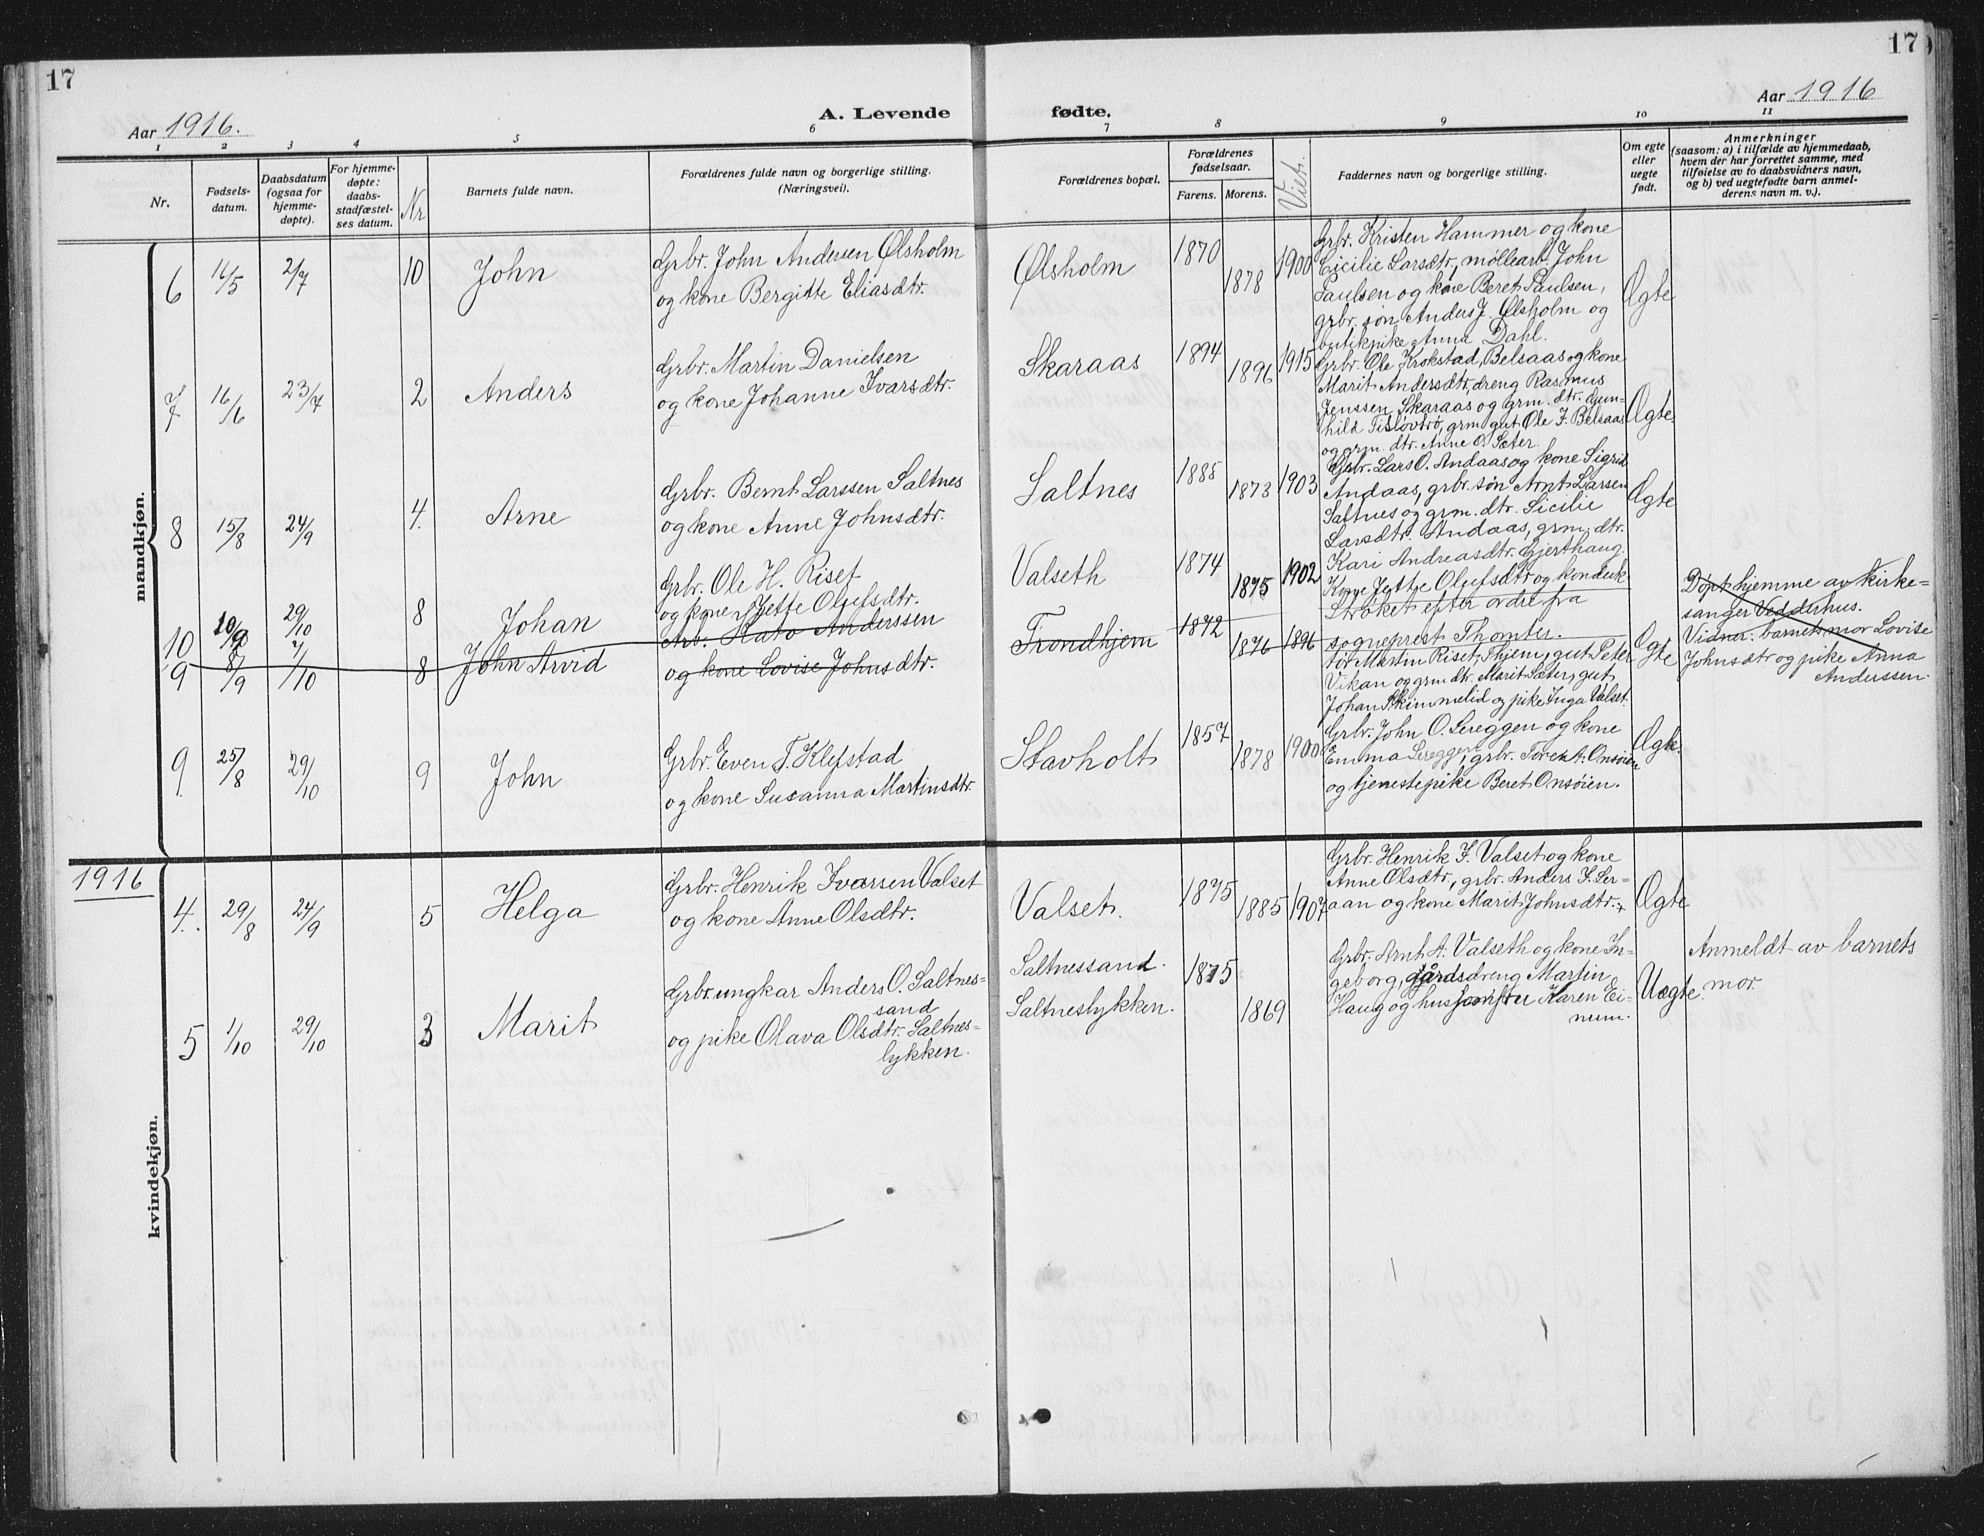 17
17
Aar 1916.
A. Levende
fødte.
Aar 1916
1 2 3 4 5 6 7 8 9 10 11
Nr.
Fødsels-
datum.
Daabsdatum
(ogsaa for
hjemme-
døpte).
For hjemme-
døpte:
daabs-
stadfæstel-
ses datum.
Nr
Barnets fulde navn.
Forældrenes fulde navn og borgerlige stilling.
(Næringsvei).
Forældrenes bopæl.
Forældrenes
fødselsaar.
Farens. Morens.
Vieb.
Faddernes navn og borgerlige stilling.
Om egte
eller
uegte
født.
Anmerkninger
(saasom: a) i tilfælde av hjemmedaab,
hvem der har forrettet samme, med
tilføielse av to daabsvidners navn,
og b) ved uegtefødte barn anmel-
derens navn m. v.).
mandkjøn.
6 14/5 2/7 10 John
Grbr. John Andersen Ølsholm
og kone Bergitte Eliasdtr.
Ølsholm 1870 1878 1900
Grbr. Kristen Hammer og kone
Cicilie Larsdtr., møllearb. John
Paulsen og kone Beret Paulsen,
grbr. søn Anders J. Ølsholm og
butikpike Anna Dahl.
Ægte
7 16/6 23/7 2 Anders
Grbr. Martin Danielsen
og kone Johanne Ivarsdtr.
Skaraas 1894 1896 1915
Grbr. Ole Krokstad, Belsaas og kone
Marit Andersdtr., dreng Rasmus
Jenssen Skaraas og grm. dtr. Gun-
hild Tisløvtrø, grm. gut Ole J. Belsaas
og grm. dtr. Anne O. Sæter.
Ægte.
8 15/8 24/9 4. Arne
Grbr. Bernt Larssen Saltnes
og kone Anne Johnsdtr.
Saltnes 1885 1873 1903
Grbr. Lars O. Andaas og kone Sigrid
Andaas, grbr. søn Arnt Larsen
Saltnes og grm. dtr. Sicilie
Larsdtr. Andaas, grm. dtr.
Kari Andreasdtr. Gjerthaug.
Ægte
10 10/9 29/10 8 Johan
Grbr. Ole H. Riset
og kone Jette Olufsdtr.
Valseth 1874 1875 1902
Kone Jette Olufsdtr og konduk-
9 8/9 7/10 8 John Arvid
Arb. Kato Anderssen
og kone Lovise Johnsdtr.
Trondhjem 1872 1876 1896
Strøket efter ordre fra
sogneprest Thomter.
tør Martin Riset, Thjem, gut Peter
Vikan og grm dtr. Marit Sæter, gut
Johan Skimmelid og pike Inga Valset.
Ægte
Døpt hjemme av kirke-
sanger Vedderhus.
Vidner: barnets mor Lovise
Johnsdtr og pike Anna
Anderssen.
9. 25/8 29/10 9 John
Grbr. Even T. Klefstad
og kone Susanna Martinsdtr.
Stavholt 1857 1878 1900
Grbr. John O. Sereggen og kone
Emma Sereggen, grbr. Tore A. Onsøien
og tjenestepike Beret Onsøien.
Ægte
1916
kvindekjøn.
4. 29/8 24/9 5 Helga
Grbr. Henrik Ivarsen Valset
og kone Anne Olsdtr.
Valset. 1875 1885 1907
Grbr. Henrik J. Valset og kone
Anne Olsdtr, grbr. Anders J. Ler-
aan og kone Marit Johnsdtr.
Ægte
5 1/10 29/10 3 Marit
Grbr. ungkar Anders O. Saltnes-
sand
og pike Olava Olsdtr. Saltnes-
lykken.
Saltnessand.
Saltneslykken.
1875 1869
Grbr. Arnt A. Valseth og kone In-
geborg, gårdsdreng Martin
Haug og husjomfru Karen Ei-
num.
Uægte.
Anmeldt av barnets
mor.